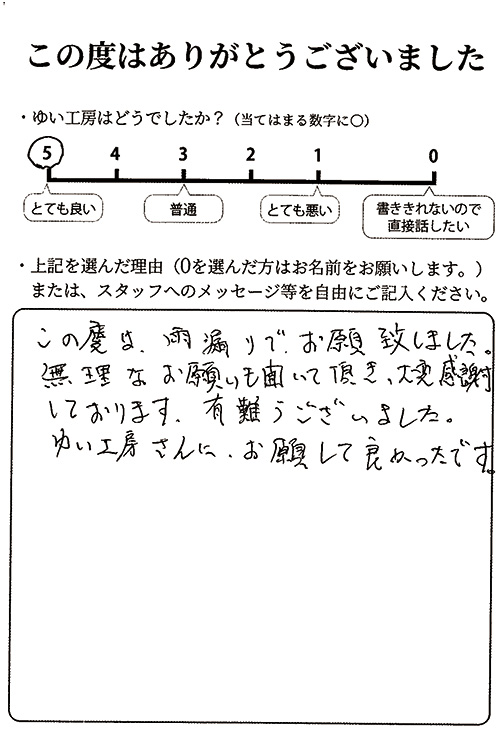 この度はありがとうございました
・ゆい工房はどうでしたか？（当てはまる数字に〇）
5 4 3 2 1 0
とても良い 普通 とても悪い 書ききれないので
直接話したい
・上記を選んだ理由（0を選んだ方はお名前をお願いします。）
または、スタッフへのメッセージ等を自由にご記入ください。
この度は、雨漏りで、お願致しました。
無理なお願いも聞いて頂き、大変感謝
しております。有難うございました。
ゆい工房さんに、お願して良かったです。